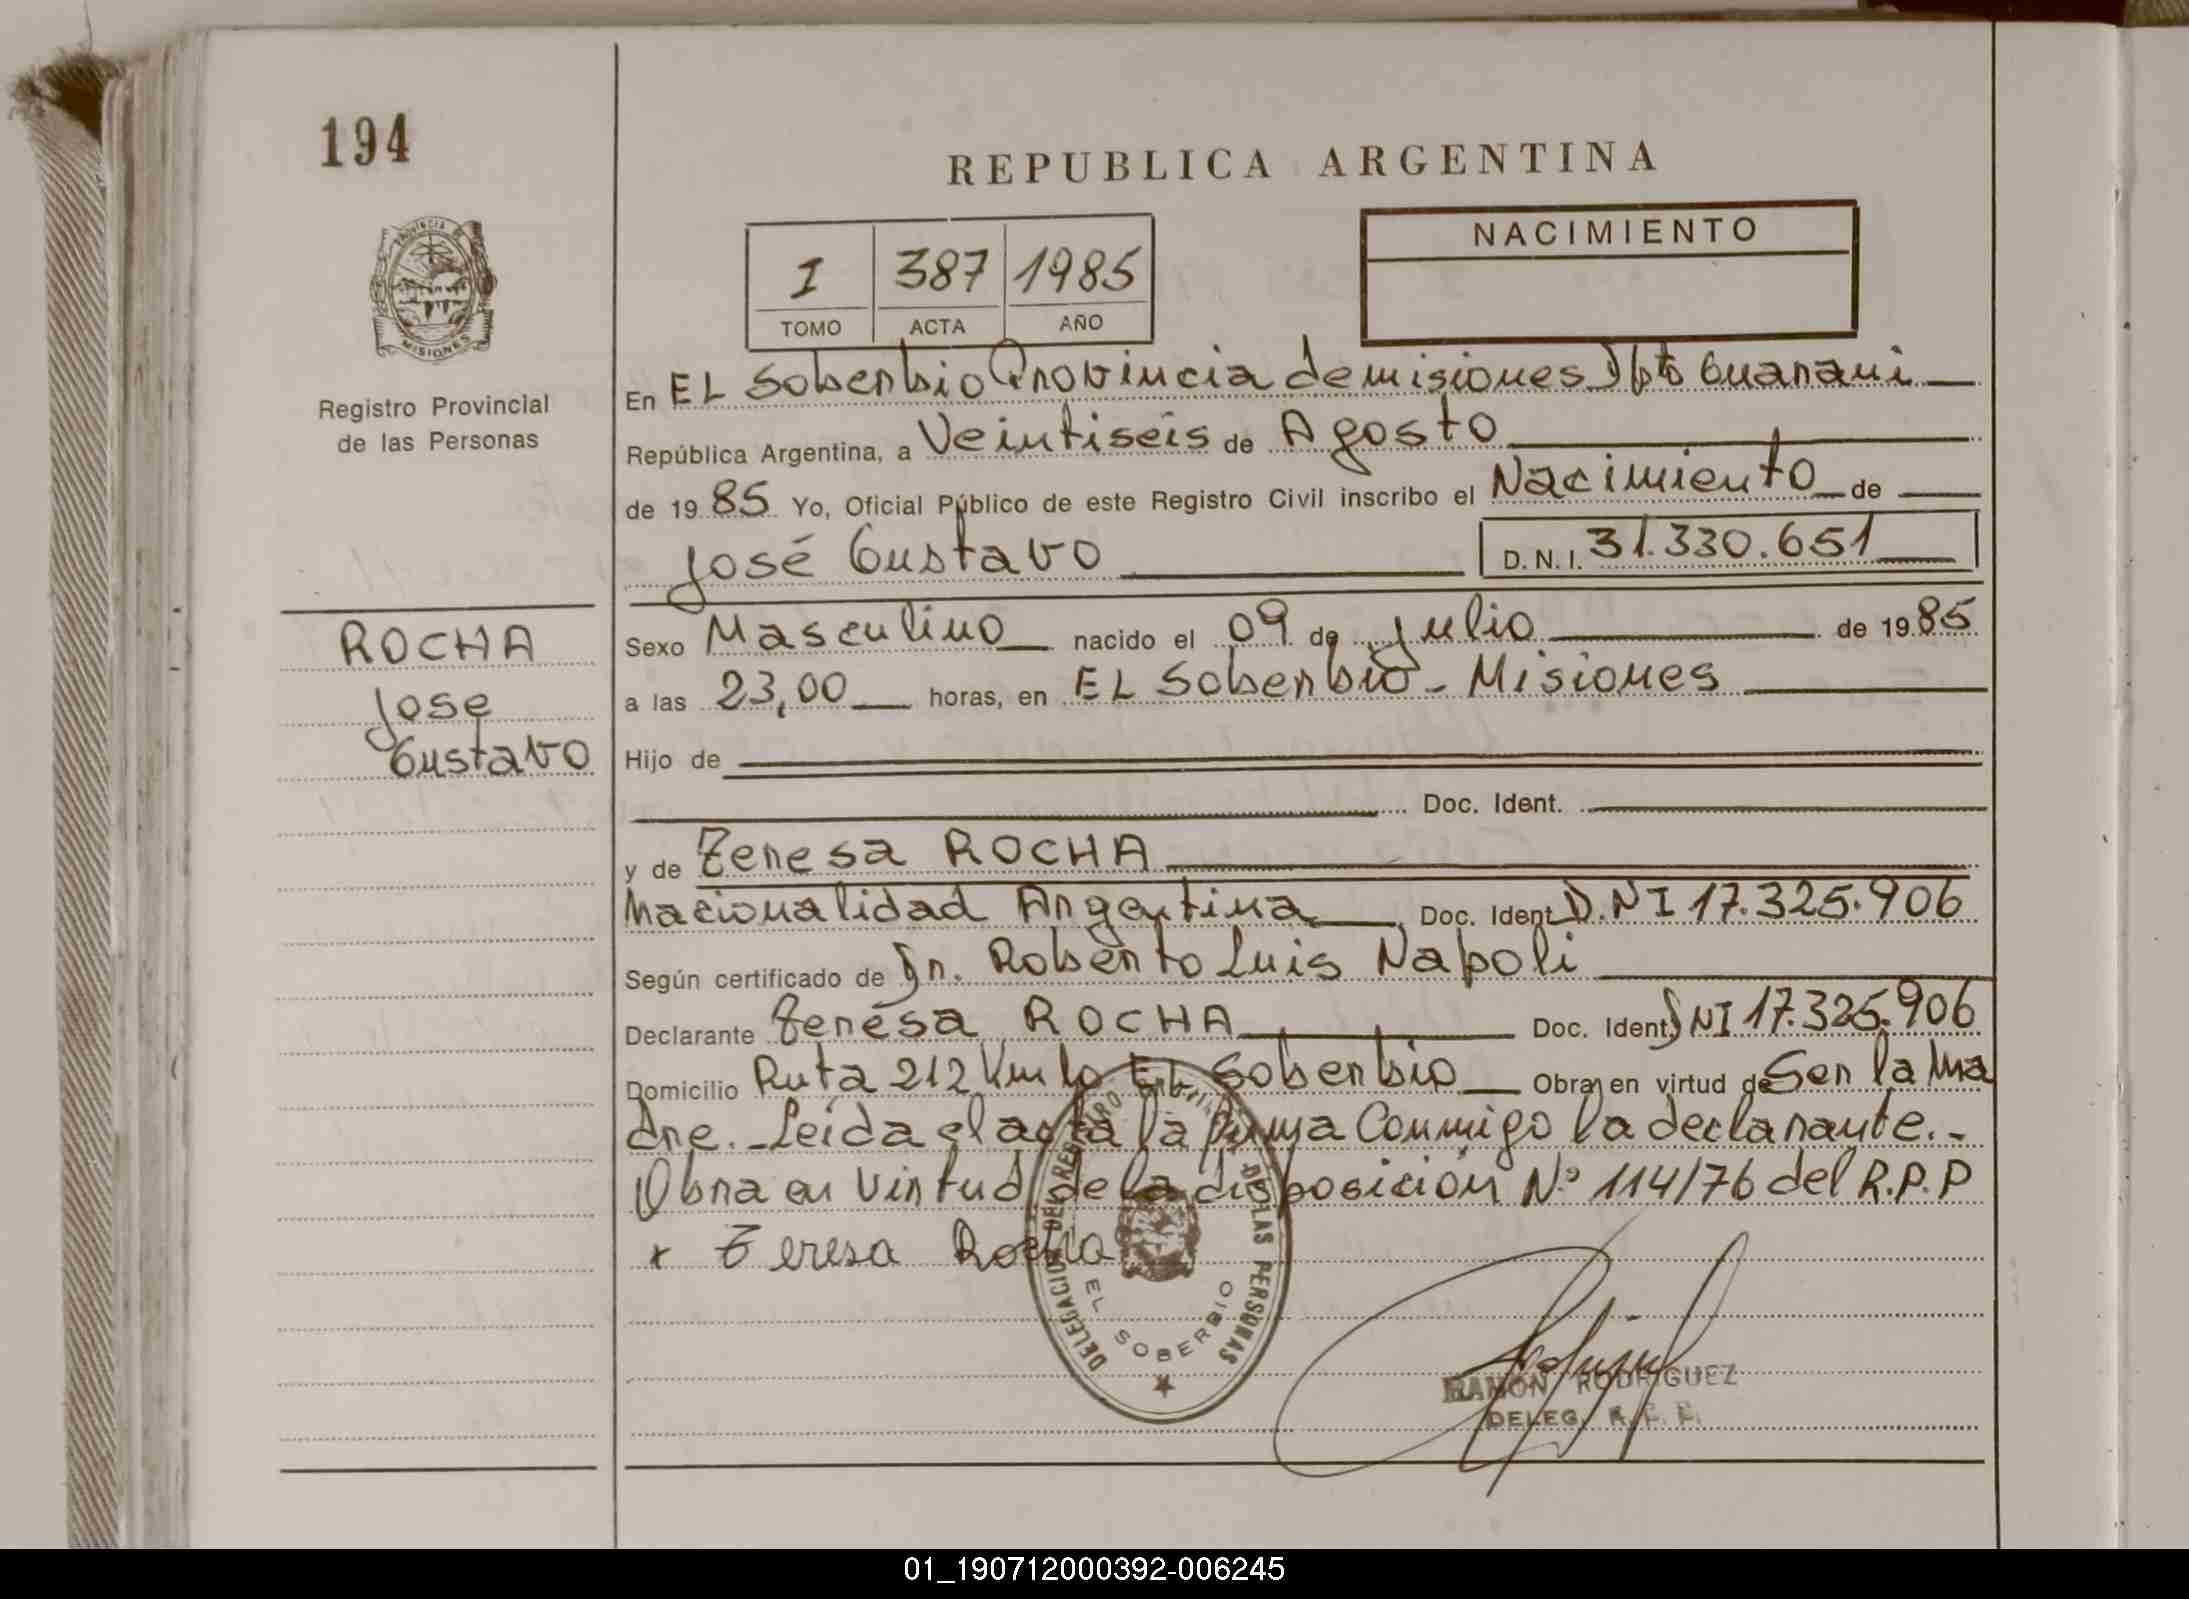 194
REPUBLICA ARGENTINA
PROVINCIA DE
MISIONES
Registro Provincial
de las Personas
I 387 1985
TOMO ACTA AÑO
NACIMIENTO
En EL Soberbio Provincia de misiones Dpto Guarani
República Argentina, a Veintiseis de Agosto
de 1985 Yo, Oficial Público de este Registro Civil inscribo el Nacimiento de
José Gustavo D.N.I. 31.330.651
ROCHA
Jose
Gustavo
Sexo Masculino nacido el 09 de julio de 1985
a las 23,00 horas, en EL Soberbio - Misiones
Hijo de
Doc. Ident.
y de Teresa ROCHA
Nacionalidad Argentina Doc. Ident. D.NI 17.325.906
Según certificado de Dr. Roberto Luis Napoli
Declarante Teresa ROCHA Doc. Ident. DNI 17.325.906
Domicilio Ruta 212 Km EL Soberbio Obra en virtud de Ser la Ma
dre. Leída el acta la firma Conmigo la declarante.-
Obra en Virtud de la disposición Nº 114/76 del R.P.P
x Teresa Rocha
DELEGACION DEL REGISTRO DE LAS PERSONAS
EL SOBERBIO
RAMON RODRIGUEZ
DELEG. R. P. P.
01_190712000392-006245